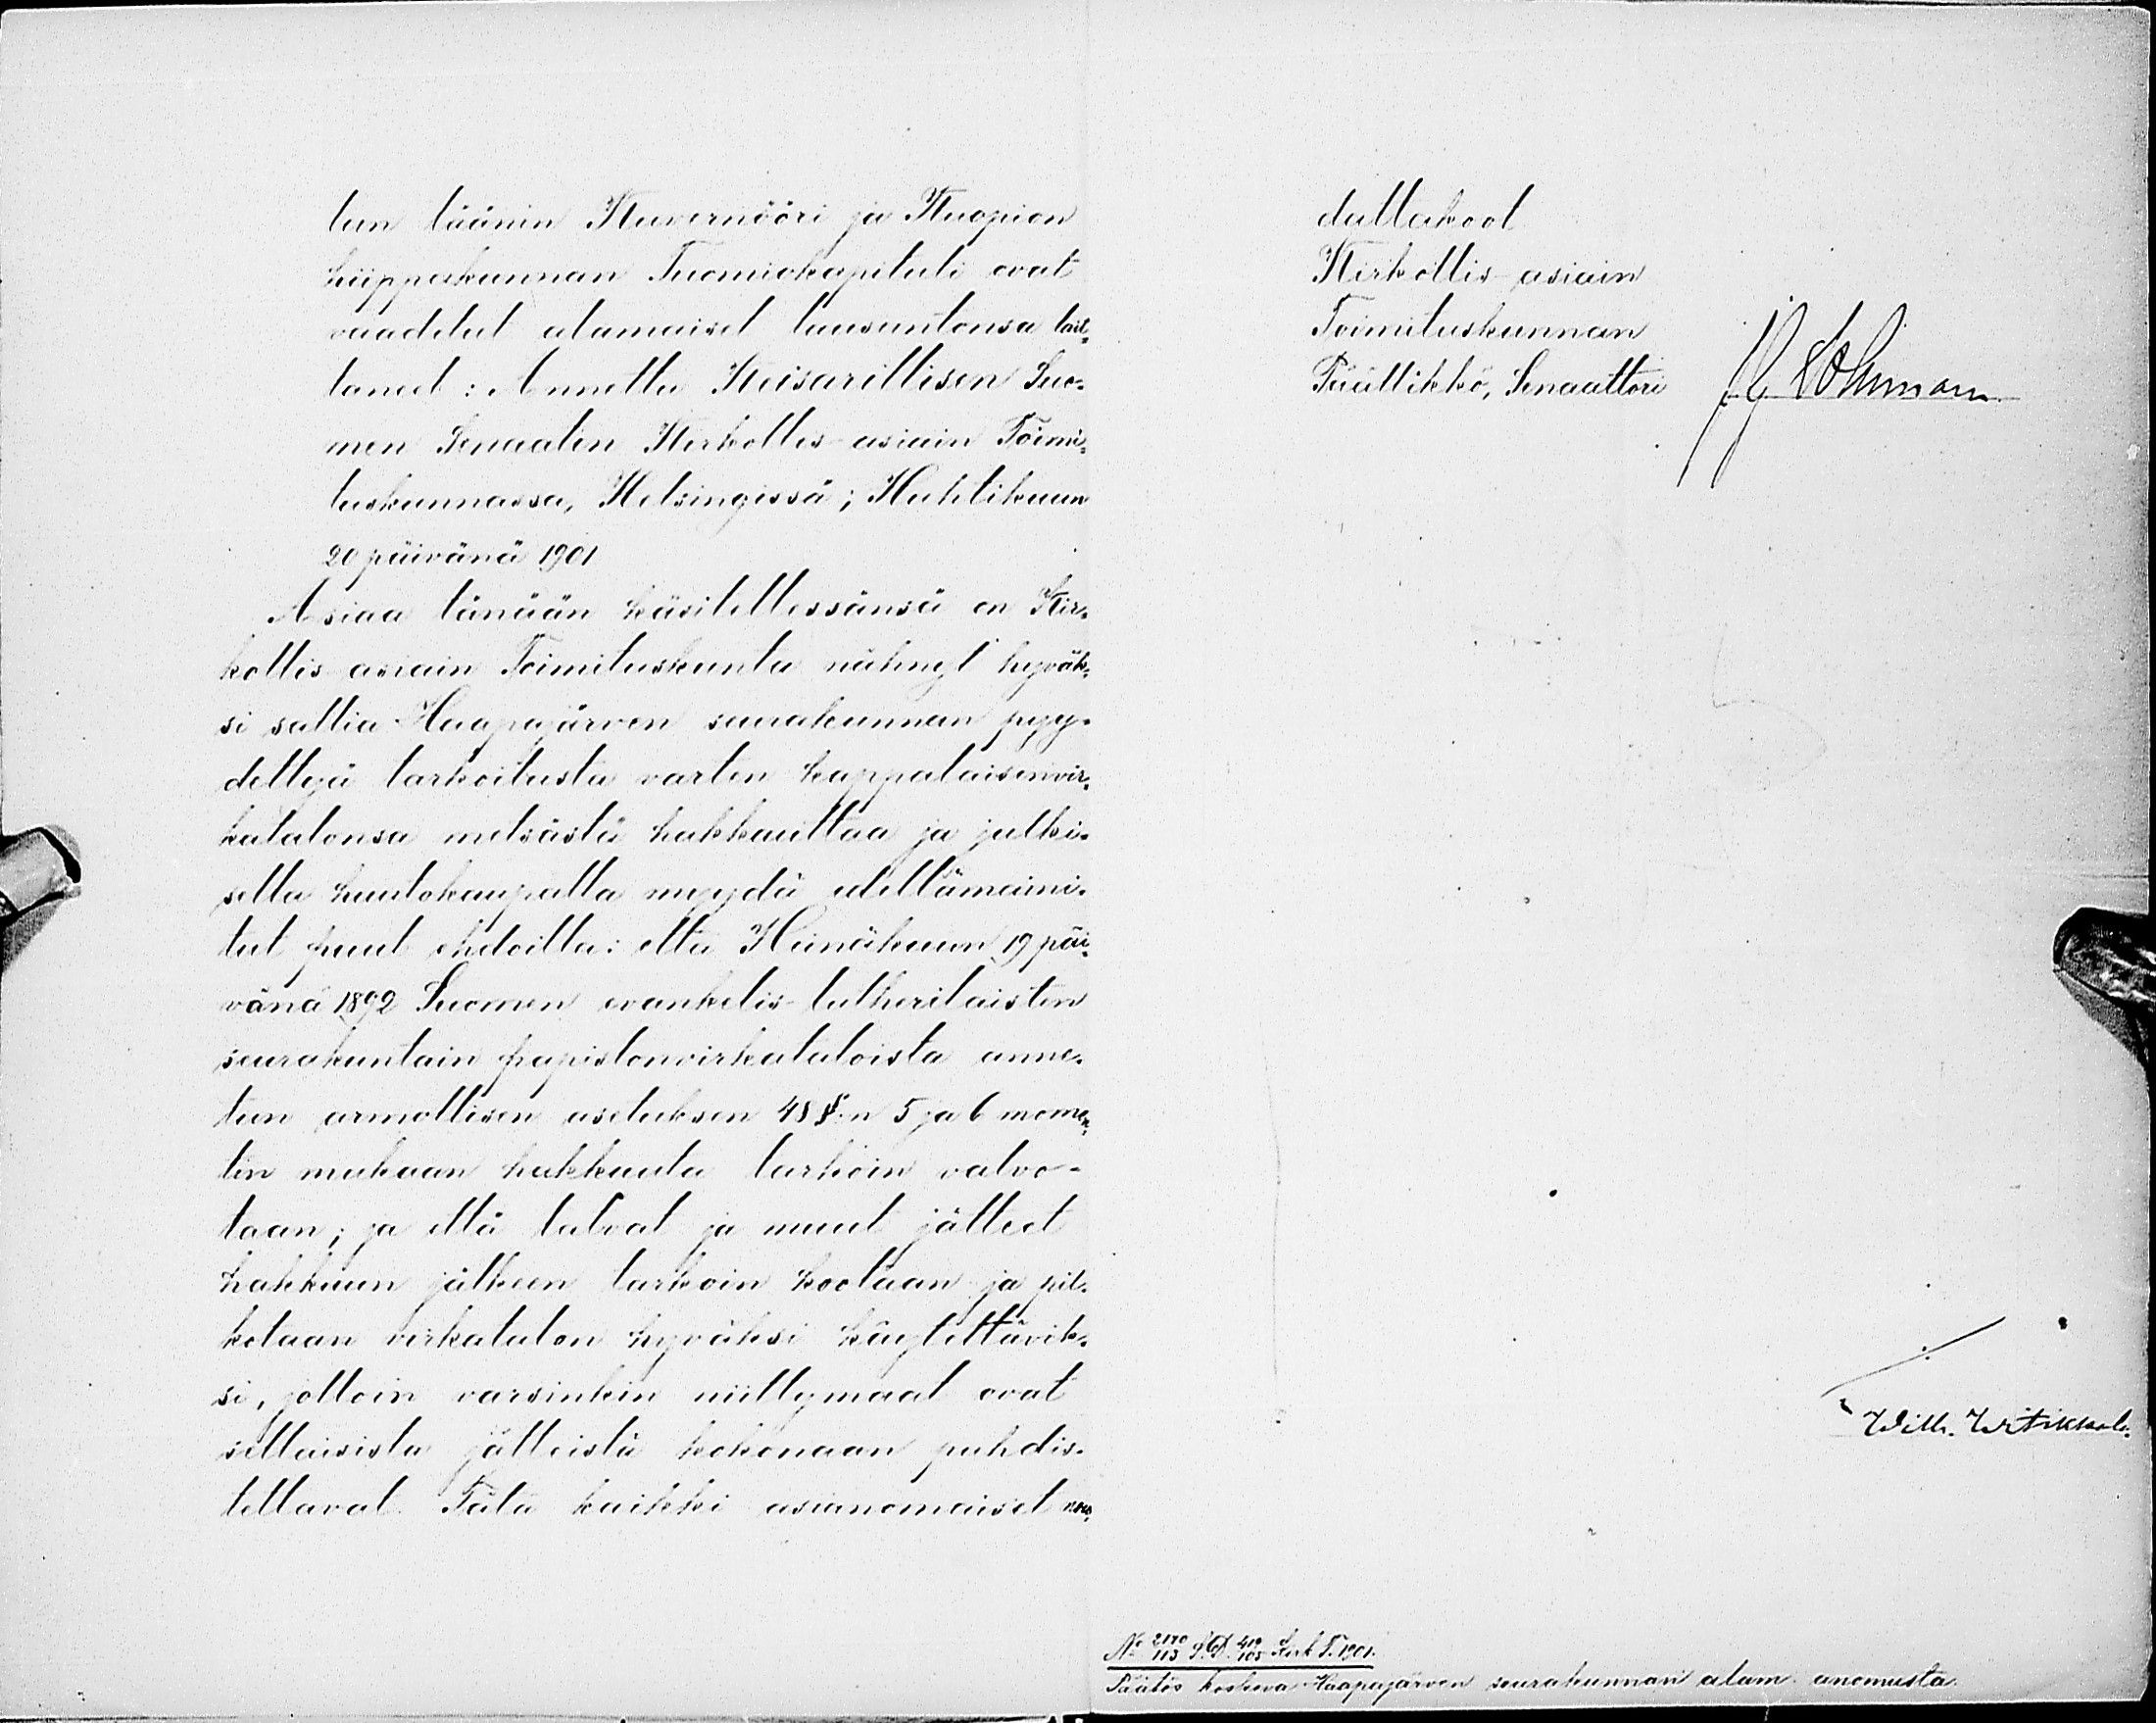 lun läänin Kuvernööri ja Kuopion
hiippakunnan Tuomiokapituli ovat
vaaditut alamaiset lausuntonsa lait-
taneet: Annettu Keisarillisen Suo-
men Senaatin Kirkollis-asiain Toimi-
tuskunnassa, Helsingissä; Huhtikuun
20 päivänä 1901
Asiaa tänään käsitellessänsä on Kir-
kollis-asiain Toimituskunta nähnyt hyväk-
si sallia Haapajärven seurakunnan pyy-
dettyä tarkoitusta varten kappalaisenvir-
katalonsa metsästä hakkauttaa ja julki-
sella huutokaupalla myydä edellämaini-
tut puut ehdoilla: että Heinäkuun 19 päi-
vänä 1892 Suomen evankelis-lutherilaisten
seurakuntain papistonvirkataloista anne-
tun armollisen asetuksen 48 §:n 5 ja 6 momen-
tin mukaan hakkuuta tarkoin valvo-
taan; ja että latvat ja muut jätteet
hakkuun jälkeen tarkoin kootaan ja pil-
kotaan virkatalon hyväksi käytettävik-
si, jolloin varsinkin niittymaat ovat
sellaisista jätteistä kokonaan puhdis-
tettavat. Tätä kaikki asianomaiset nou-
dattakoot
Kirkollis-asiain
Toimituskunnan
Päällikkö, Senaattori
Wilh.
No 2170/113 419/105 Kirk T. 1901.
Päätös koskeva Haapajärven seurakunnan alam. anomusta.